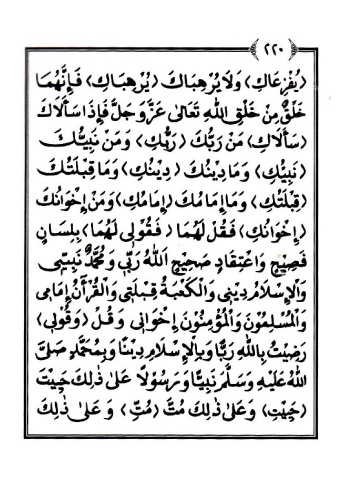 ٢٢٠
(يُفْزِعَاكِ) وَلَا يُرْهِبَاكَ (يُرْهِبَاكِ) فَإِنَّهُمَا
خَلْقٌ مِنْ خَلْقِ اللهِ تَعَالَى عَزَّ وَجَلَّ فَإِذَا سَأَلَاكَ
(سَأَلَاكِ) مَنْ رَبُّكَ (رَبُّكِ) وَمَنْ نَبِيُّكَ
(نَبِيُّكِ) وَمَا دِينُكَ (دِينُكِ) وَمَا قِبْلَتُكَ
(قِبْلَتُكِ) وَمَا إِمَامُكَ (إِمَامُكِ) وَمَنْ إِخْوَانُكَ
(إِخْوَانُكِ) فَقُلْ لَهُمَا (فَقُوْلِى لَهُمَا) بِلِسَانٍ
فَصِيْحٍ وَاعْتِقَادٍ صَحِيْحٍ اَللهُ رَبِّى وَمُحَمَّدٌ نَبِيِّى
وَالْإِسْلَامُ دِيْنِى وَالْكَعْبَةُ قِبْلَتِى وَالْقُرْآنُ إِمَامِى
وَالْمُسْلِمُوْنَ وَالْمُؤْمِنُوْنَ إِخْوَانِى وَقُلْ (وَقُوْلِى)
رَضِيْتُ بِاللهِ رَبًّا وَبِالْإِسْلَامِ دِيْنًا وَبِمُحَمَّدٍ صَلَّى
اللهُ عَلَيْهِ وَسَلَّمَ نَبِيًّا وَرَسُوْلًا عَلَى ذٰلِكَ حَيِيْتَ
(حَيِيْتِ) وَعَلَى ذٰلِكَ مُتَّ (مُتِّ) وَعَلَى ذٰلِكَ